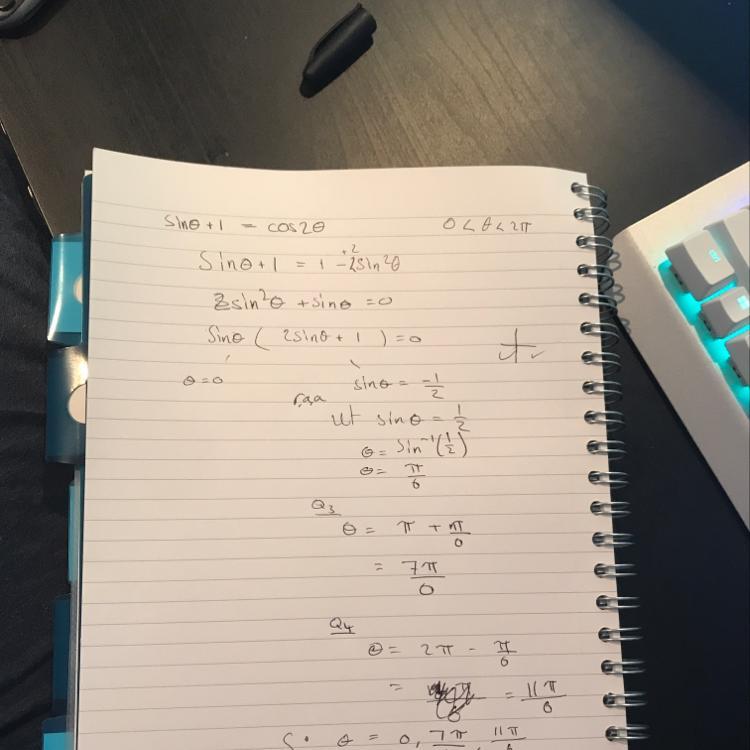 sinθ + 1 = cos2θ 0 < θ < 2π
sinθ + 1 = 1 - 2sin²θ
2sin²θ + sinθ = 0
sinθ ( 2sinθ + 1 ) = 0
θ = 0 sinθ = -1/2
raa
let sinθ = 1/2
θ = sin⁻¹(1/2)
θ = π/6
Q3
θ = π + π/6
= 7π/6
Q4
θ = 2π - π/6
= 11π/6
θ = 0, 7π/6, 11π/6